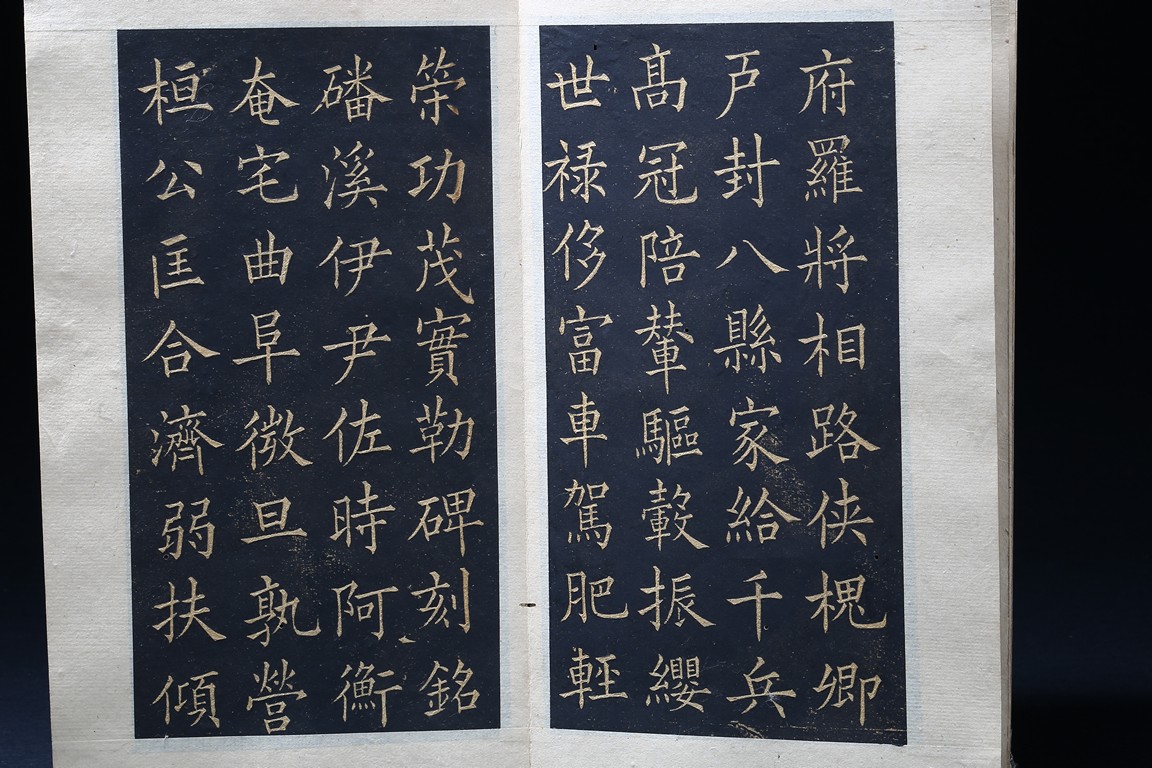 府羅將相路侠槐卿
戸封八縣家給千兵
髙冠陪輦驅轂振纓
世禄侈富車駕肥輕
策功茂實勒碑刻銘
磻溪伊尹佐時阿衡
奄宅曲阜微旦孰營
桓公匡合濟弱扶傾